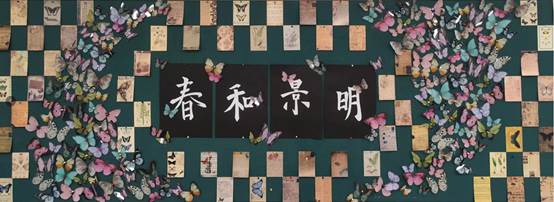 春和景明